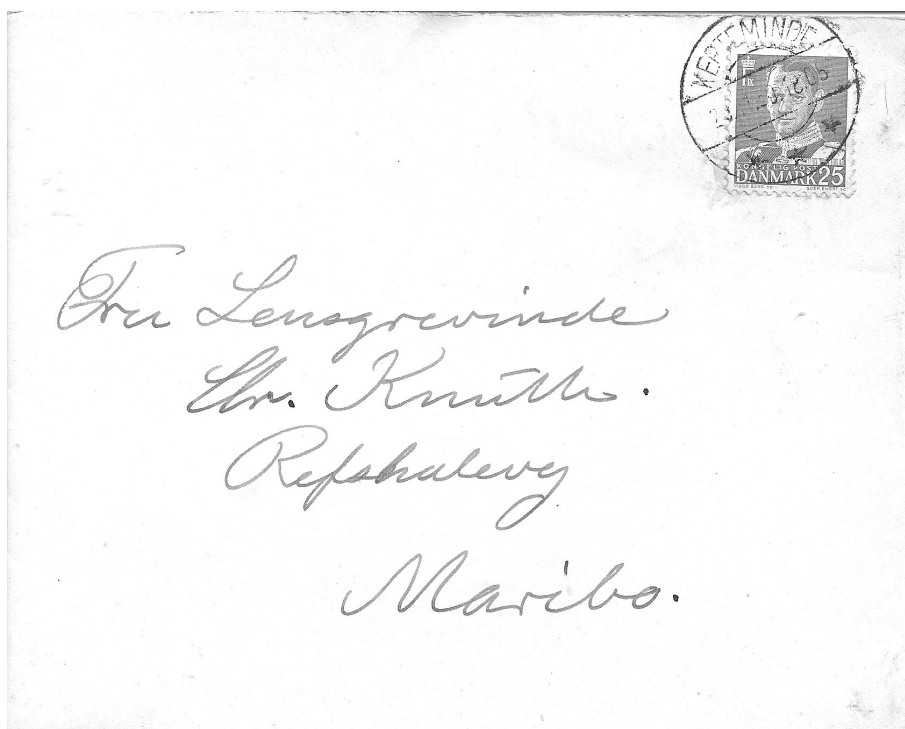 KERTEMINDE
KONGELIG POST
DANMARK 25
VIGGO BANG DEL
Fru Lensgrevinde
Chr. Knuth.
Refshalevej
Maribo.